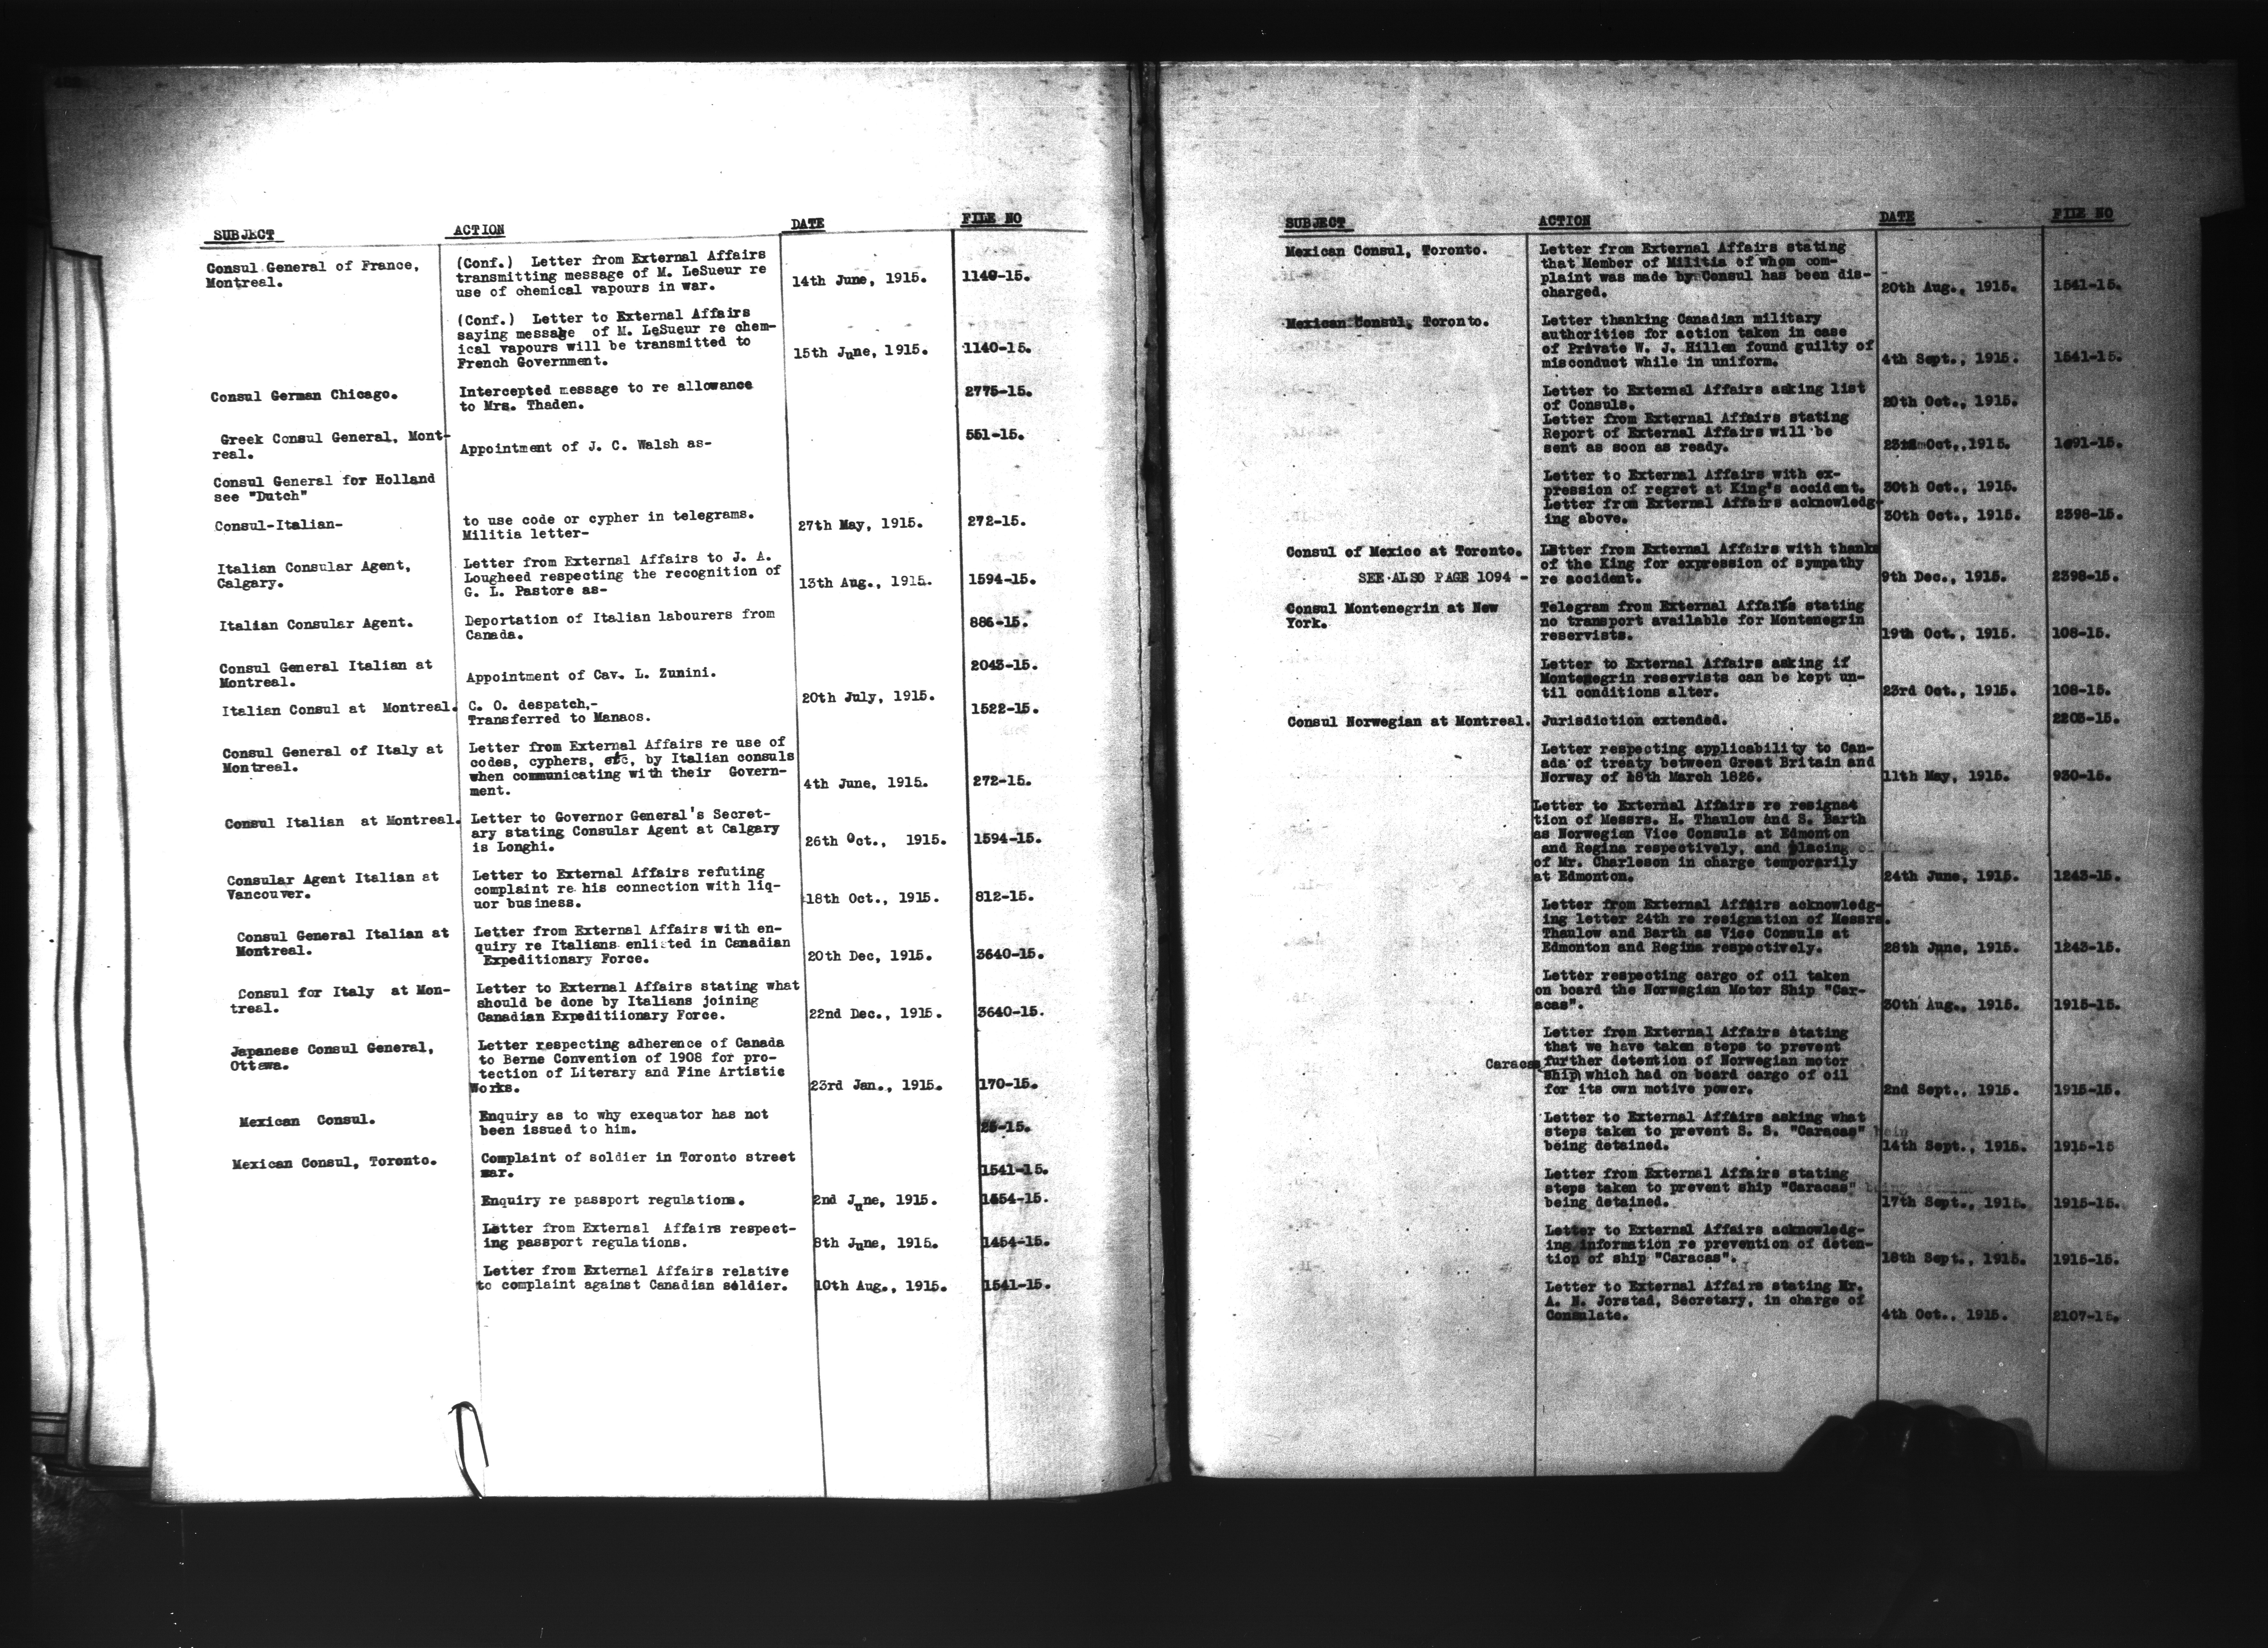 SUBJECT ACTION DATE FILE NO
Consul General of France, (Conf.) Letter from External Affairs
Montreal. transmitting message of M. LeSueur re 14th June, 1915. 1140-15.
use of chemical vapours in war.
(Conf.) Letter to External Affairs
saying message of M. LeSueur re chem-
ical vapours will be transmitted to 15th June, 1915. 1140-15.
French Government.
Consul German Chicago. Intercepted message to re allowance 2775-15.
to Mrs. Thaden.
Greek Consul General, Mont- 551-15.
real. Appointment of J. C. Walsh as-
Consul General for Holland
see "Dutch"
Consul-Italian- to use code or cypher in telegrams. 27th May, 1915. 272-15.
Militia letter-
Italian Consular Agent, Letter from External Affairs to J. A.
Calgary. Lougheed respecting the recognition of 13th Aug., 1915. 1594-15.
G. L. Pastore as-
Italian Consular Agent. Deportation of Italian labourers from 886-15.
Canada.
Consul General Italian at 2043-15.
Montreal. Appointment of Cav. L. Zunini.
Italian Consul at Montreal. C. O. despatch,- 20th July, 1915. 1522-15.
Transferred to Manaos.
Consul General of Italy at Letter from External Affairs re use of
Montreal. codes, cyphers, etc, by Italian consuls
when communicating with their Govern- 4th June, 1915. 272-15.
ment.
Consul Italian at Montreal. Letter to Governor General's Secret-
ary stating Consular Agent at Calgary 26th Oct., 1915. 1594-15.
is Longhi.
Consular Agent Italian at Letter to External Affairs refuting
Vancouver. complaint re his connection with liq- 18th Oct., 1915. 812-15.
uor business.
Consul General Italian at Letter from External Affairs with en-
Montreal. quiry re Italians enlisted in Canadian 20th Dec, 1915. 3640-15.
Expeditionary Force.
Consul for Italy at Mon- Letter to External Affairs stating what
treal. should be done by Italians joining 22nd Dec., 1915. 3640-15.
Canadian Expeditiionary Force.
Japanese Consul General, Letter respecting adherence of Canada
Ottawa. to Berne Convention of 1908 for pro-
tection of Literary and Fine Artistic 23rd Jan., 1915. 170-15.
Works.
Mexican Consul. Enquiry as to why exequator has not
been issued to him. 25-15.
Mexican Consul, Toronto. Complaint of soldier in Toronto street
car. 1541-15.
Enquiry re passport regulations. 2nd June, 1915. 1454-15.
Letter from External Affairs respect-
ing passport regulations. 8th June, 1915. 1454-15.
Letter from External Affairs relative
to complaint against Canadian soldier. 10th Aug., 1915. 1541-15.
SUBJECT ACTION DATE FILE NO
Mexican Consul, Toronto. Letter from External Affairs stating
that Member of Militia of whom com-
plaint was made by Consul has been dis-
charged. 20th Aug., 1915. 1541-15.
Mexican Consul, Toronto. Letter thanking Canadian military
authorities for action taken in case
of Private W. J. Hillen found guilty of
misconduct while in uniform. 4th Sept., 1915. 1541-15.
Letter to External Affairs asking list
of Consuls. 20th Oct., 1915.
Letter from External Affairs stating
Report of External Affairs will be
sent as soon as ready. Oct., 1915. 1691-15.
Letter to External Affairs with ex-
pression of regret at King's accident. 30th Oct., 1915.
Letter from External Affairs acknowledg-
ing above. 30th Oct., 1915. 2398-15.
Consul of Mexico at Toronto. Letter from External Affairs with thanks
of the King for expression of sympathy
SEE ALSO PAGE 1094 - re accident. 9th Dec., 1915. 2398-15.
Consul Montenegrin at New Telegram from External Affairs stating
York. no transport available for Montenegrin
reservists. 19th Oct., 1915. 108-15.
Letter to External Affairs asking if
Montenegrin reservists can be kept un-
til conditions alter. 23rd Oct., 1915. 108-15.
Consul Norwegian at Montreal. Jurisdiction extended. 2203-15.
Letter respecting applicability to Can-
ada of treaty between Great Britain and
Norway of 18th March 1826. 11th May, 1915. 930-15.
Letter to External Affairs re resignat
tion of Messrs. H. Thaulow and S. Barth
as Norwegian Vice Consuls at Edmonton
and Regina respectively, and placing
of Mr. Charleson in charge temporarily
at Edmonton. 24th June, 1915. 1243-15.
Letter from External Affairs acknowledg-
ing letter 24th re resignation of Messrs.
Thaulow and Barth as Vice Consuls at
Edmonton and Regina respectively. 28th June, 1915. 1243-15.
Letter respecting cargo of oil taken
on board the Norwegian Motor Ship "Car-
acas". 30th Aug., 1915. 1915-15.
Letter from External Affairs stating
that we have taken steps to prevent
Caracas further detention of Norwegian motor
ship which had on board cargo of oil
for its own motive power. 2nd Sept., 1915. 1915-15.
Letter to External Affairs asking what
steps taken to prevent S. S. "Caracas"
being detained. 14th Sept., 1915. 1915-15
Letter from External Affairs stating
steps taken to prevent ship "Caracas"
being detained. 17th Sept., 1915. 1915-15.
Letter to External Affairs acknowledg-
ing information re prevention of deten-
tion of ship "Caracas". 18th Sept., 1915. 1915-15.
Letter to External Affairs stating Mr.
A. N. Jorstad, Secretary, in charge of
Consulate. 4th Oct., 1915. 2107-15.